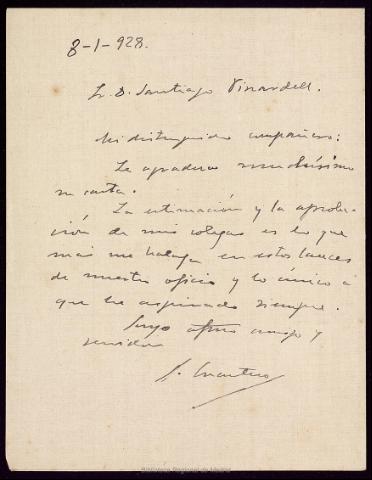 8-1-928.
Sr. D. Santiago Vinardell.
Mi distinguido compañero:
Le agradezco muchísimo
su carta.
La estimación y la aproba-
ción de mis colegas es lo que
más me halaga en estos lances
de nuestro oficio y lo único a
que he aspirado siempre.
Suyo afmo amigo y
servidor
Biblioteca Regional de Madrid